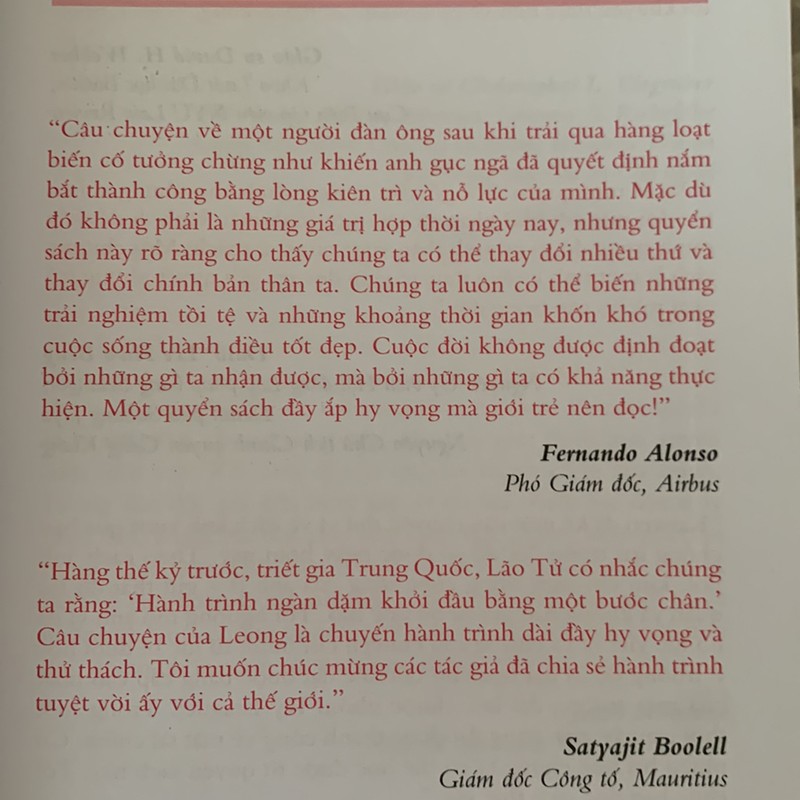 “Câu chuyện về một người đàn ông sau khi trải qua hàng loạt
biến cố tưởng chừng như khiến anh gục ngã đã quyết định nắm
bắt thành công bằng lòng kiên trì và nỗ lực của mình. Mặc dù
đó không phải là những giá trị hợp thời ngày nay, nhưng quyển
sách này rõ ràng cho thấy chúng ta có thể thay đổi nhiều thứ và
thay đổi chính bản thân ta. Chúng ta luôn có thể biến những
trải nghiệm tồi tệ và những khoảng thời gian khốn khó trong
cuộc sống thành điều tốt đẹp. Cuộc đời không được định đoạt
bởi những gì ta nhận được, mà bởi những gì ta có khả năng thực
hiện. Một quyển sách đầy ắp hy vọng mà giới trẻ nên đọc!”
Fernando Alonso
Phó Giám đốc, Airbus
“Hàng thế kỷ trước, triết gia Trung Quốc, Lão Tử có nhắc chúng
ta rằng: ‘Hành trình ngàn dặm khởi đầu bằng một bước chân.’
Câu chuyện của Leong là chuyến hành trình dài đầy hy vọng và
thử thách. Tôi muốn chúc mừng các tác giả đã chia sẻ hành trình
tuyệt vời ấy với cả thế giới.”
Satyajit Boolell
Giám đốc Công tố, Mauritius